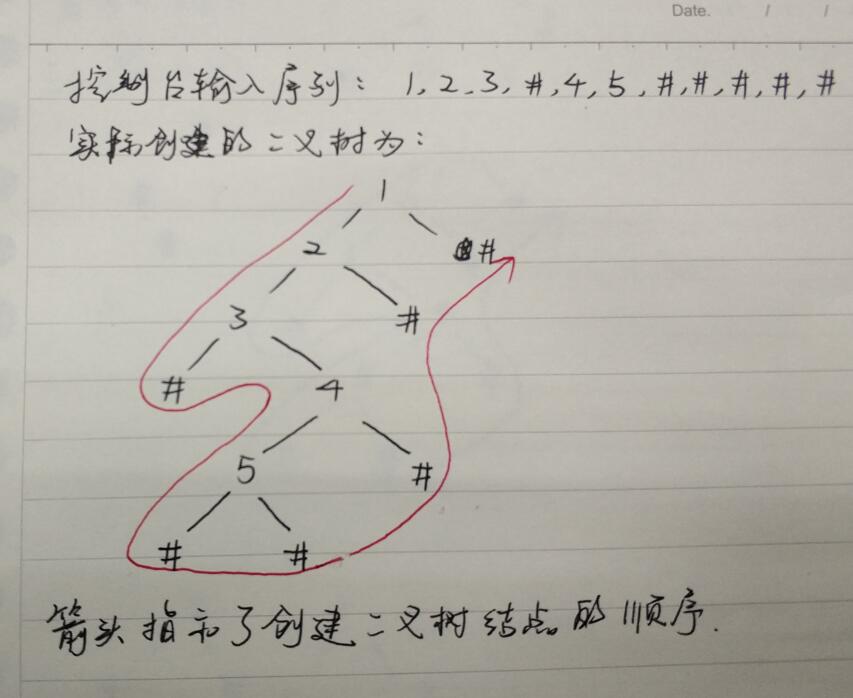 Date. / /
控制台输入序列： 1, 2, 3, #, 4, 5, #, #, #, #, #
实际创建的二叉树为：
1
2 #
3 #
# 4
5 #
# #
箭头指示了创建二叉树结点的顺序.